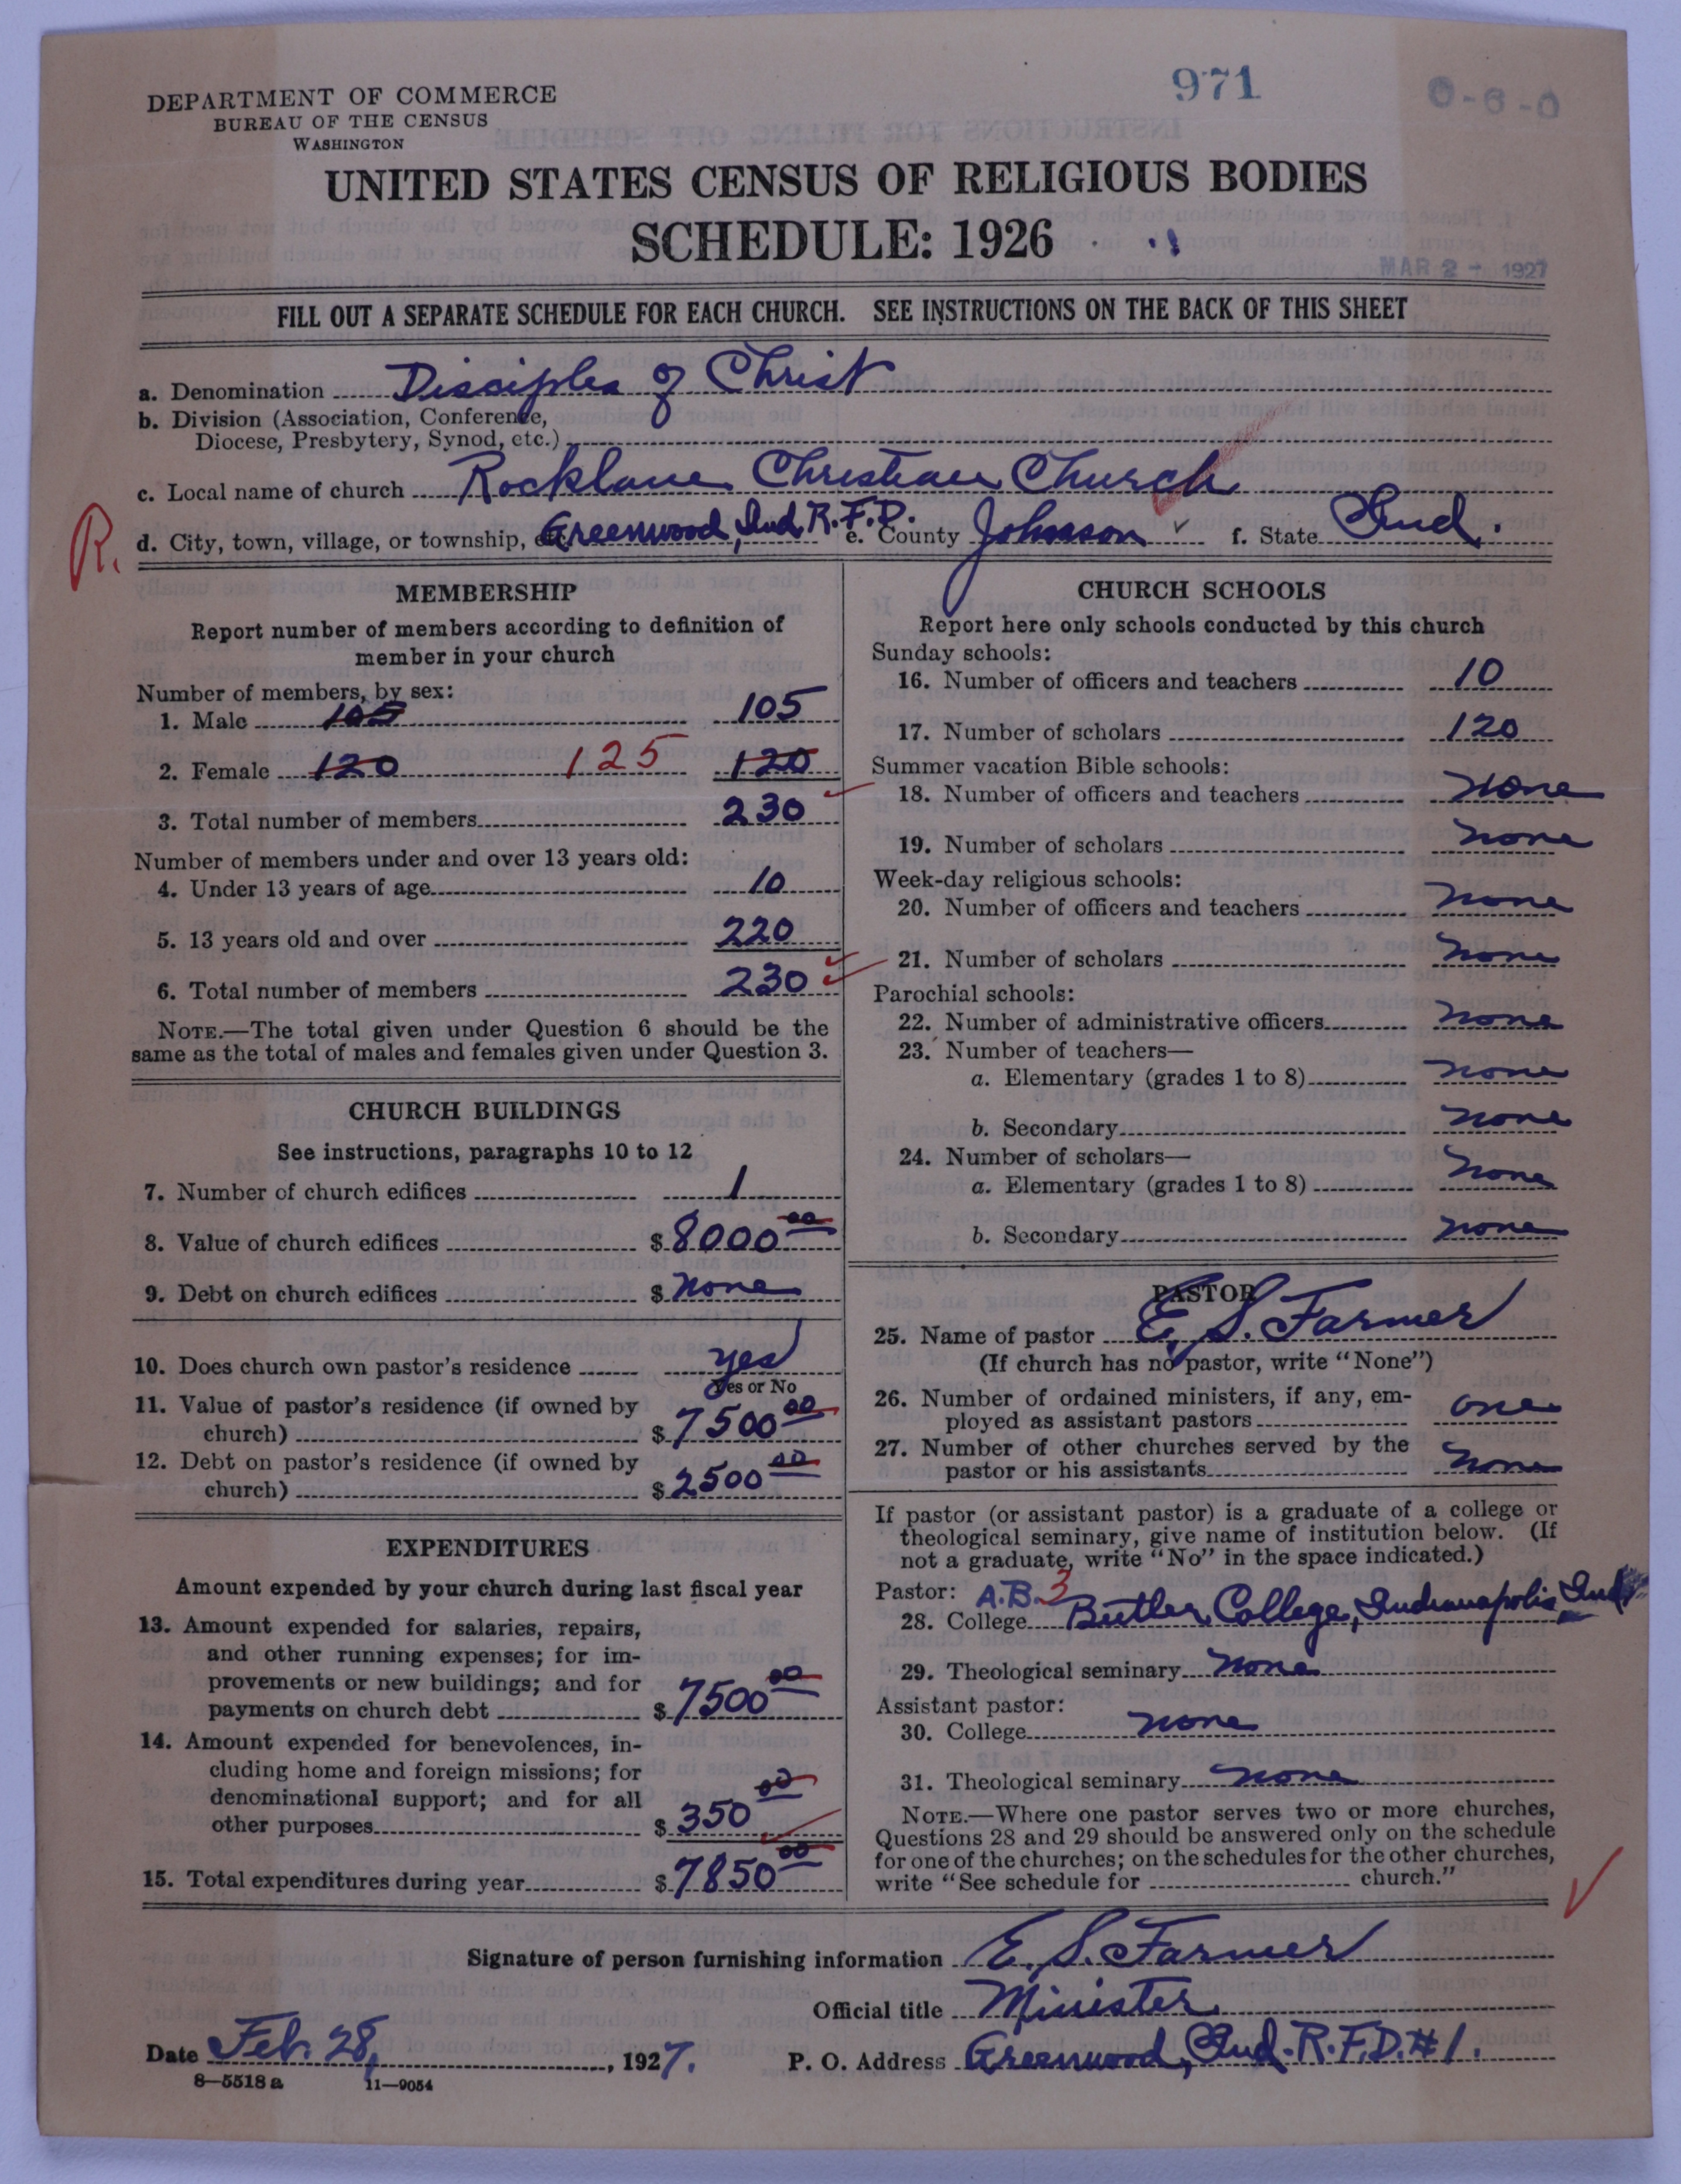 971
0-6-0
DEPARTMENT OF COMMERCE
BUREAU OF THE CENSUS
WASHINGTON
UNITED STATES CENSUS OF RELIGIOUS BODIES
SCHEDULE: 1926
MAR 2 - 1927
FILL OUT A SEPARATE SCHEDULE FOR EACH CHURCH. SEE INSTRUCTIONS ON THE BACK OF THIS SHEET
a. Denomination Disciples of Christ
b. Division (Association, Conference,
Diocese, Presbytery, Synod, etc.)
c. Local name of church Rocklane Christian Church
R.
d. City, town, village, or township, etc. Greenwood, Ind. R.F.D. e. County Johnson ✓ f. State Ind.
MEMBERSHIP
Report number of members according to definition of
member in your church
Number of members, by sex:
1. Male 105 105
2. Female 120 125 120
3. Total number of members 230
Number of members under and over 13 years old:
4. Under 13 years of age 10
5. 13 years old and over 220
6. Total number of members 230
NOTE.—The total given under Question 6 should be the
same as the total of males and females given under Question 3.
CHURCH BUILDINGS
See instructions, paragraphs 10 to 12
7. Number of church edifices 1
8. Value of church edifices $ 8000 00
9. Debt on church edifices $ none
10. Does church own pastor's residence yes
Yes or No
11. Value of pastor's residence (if owned by
church) $ 7500 00
12. Debt on pastor's residence (if owned by
church) $ 2500 00
EXPENDITURES
Amount expended by your church during last fiscal year
13. Amount expended for salaries, repairs,
and other running expenses; for im-
provements or new buildings; and for
payments on church debt $ 7500 00
14. Amount expended for benevolences, in-
cluding home and foreign missions; for
denominational support; and for all
other purposes $ 350 00
15. Total expenditures during year $ 7850 00
CHURCH SCHOOLS
Report here only schools conducted by this church
Sunday schools:
16. Number of officers and teachers 10
17. Number of scholars 120
Summer vacation Bible schools:
18. Number of officers and teachers none
19. Number of scholars none
Week-day religious schools:
20. Number of officers and teachers none
21. Number of scholars none
Parochial schools:
22. Number of administrative officers none
23. Number of teachers—
a. Elementary (grades 1 to 8) none
b. Secondary none
24. Number of scholars—
a. Elementary (grades 1 to 8) none
b. Secondary none
PASTOR
25. Name of pastor E. S. Farmer
(If church has no pastor, write "None")
26. Number of ordained ministers, if any, em-
ployed as assistant pastors one
27. Number of other churches served by the
pastor or his assistants none
If pastor (or assistant pastor) is a graduate of a college or
theological seminary, give name of institution below. (If
not a graduate, write "No" in the space indicated.)
Pastor: A.B. 3
28. College Butler College, Indianapolis Ind
29. Theological seminary none
Assistant pastor:
30. College none
31. Theological seminary none
NOTE.—Where one pastor serves two or more churches,
Questions 28 and 29 should be answered only on the schedule
for one of the churches; on the schedules for the other churches,
write "See schedule for church."
Signature of person furnishing information E. S. Farmer
Official title Minister
Date Feb. 28, 1927. P. O. Address Greenwood, Ind. R.F.D. #1.
8—5518 a 11—9054